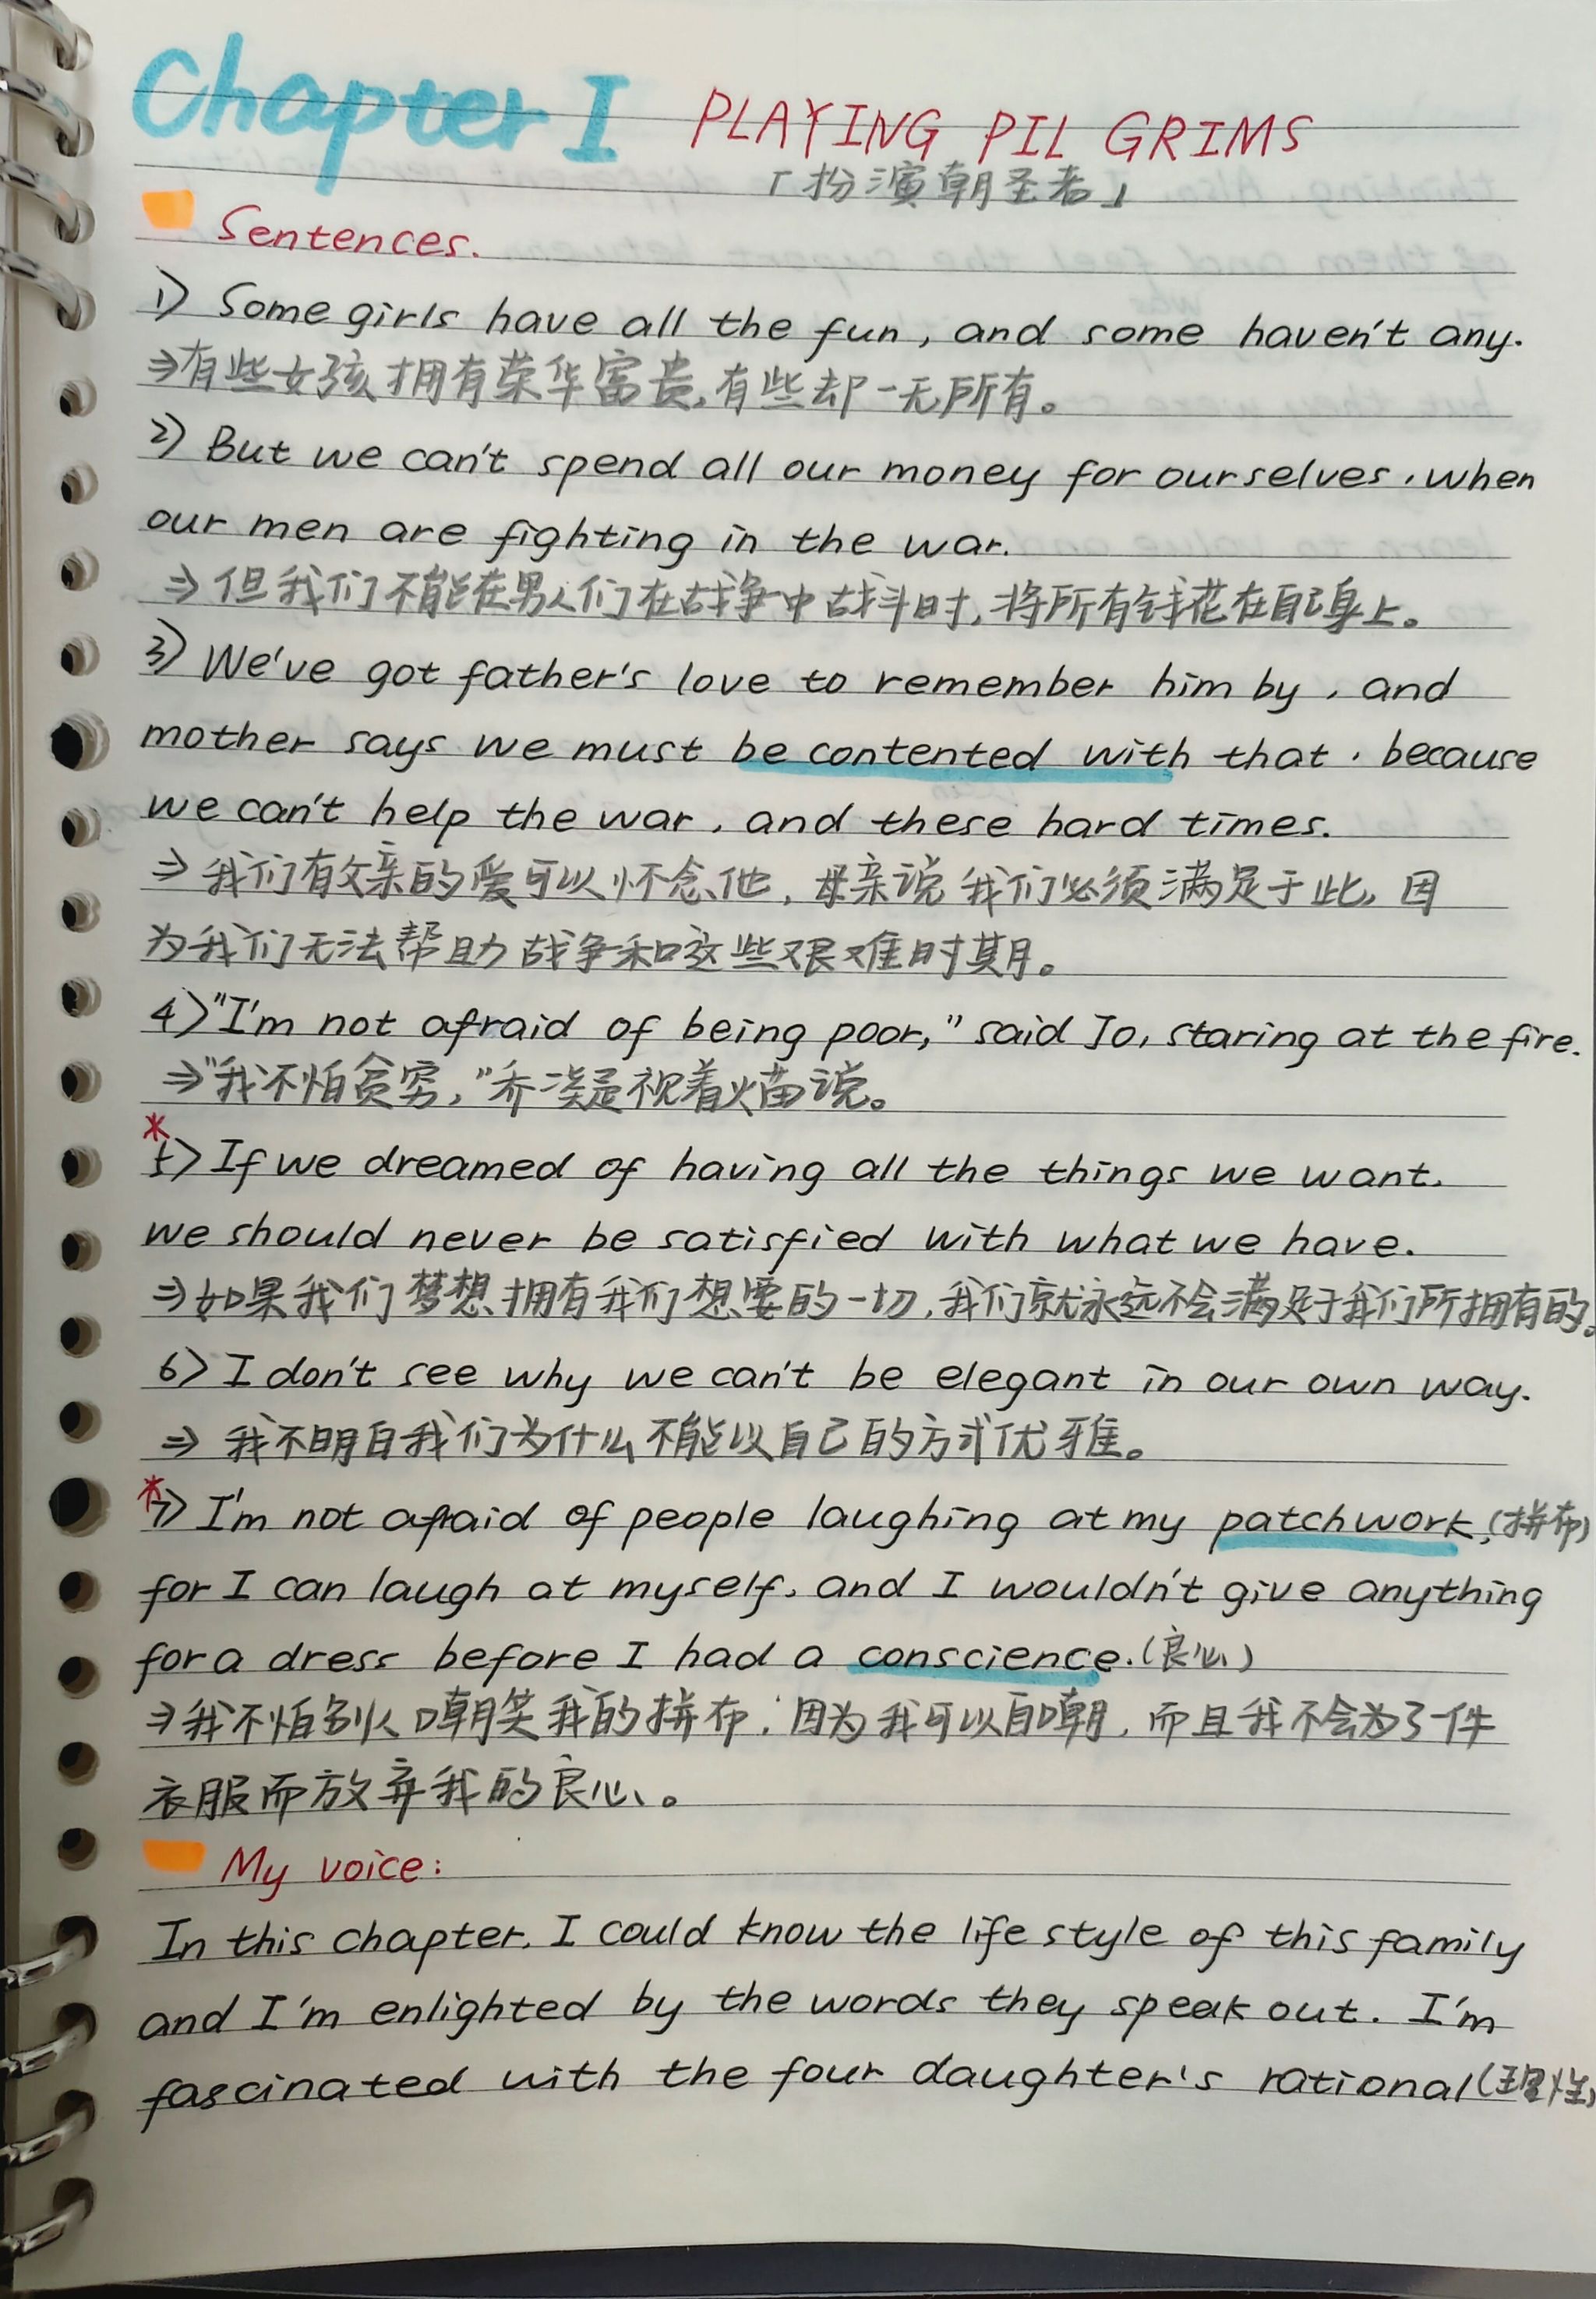 Chapter I PLAYING PILGRIMS
「扮演朝圣者」
Sentences.
1) Some girls have all the fun, and some haven't any.
⇒有些女孩拥有荣华富贵,有些却一无所有。
2) But we can't spend all our money for ourselves, when
our men are fighting in the war.
⇒但我们不能在男人们在战争中战斗时,将所有钱花在自己身上。
3) We've got father's love to remember him by, and
mother says we must be contented with that, because
we can't help the war, and these hard times.
⇒我们有父亲的爱可以怀念他,母亲说我们必须满足于此,因
为我们无法帮助战争和这些艰难时期。
4) "I'm not afraid of being poor," said Jo, staring at the fire.
⇒"我不怕贫穷,"乔凝视着火苗说。
*
5) If we dreamed of having all the things we want,
we should never be satisfied with what we have.
⇒如果我们梦想拥有我们想要的一切,我们就永远不会满足于我们所拥有的。
6) I don't see why we can't be elegant in our own way.
⇒我不明白我们为什么不能以自己的方式优雅。
*7) I'm not afraid of people laughing at my patchwork,(拼布)
for I can laugh at myself, and I wouldn't give anything
for a dress before I had a conscience.(良心)
⇒我不怕别人嘲笑我的拼布,因为我可以自嘲,而且我不会为了一件
衣服而放弃我的良心。
My voice:
In this chapter, I could know the life style of this family
and I'm enlighted by the words they speak out. I'm
fascinated with the four daughter's rational(理性)